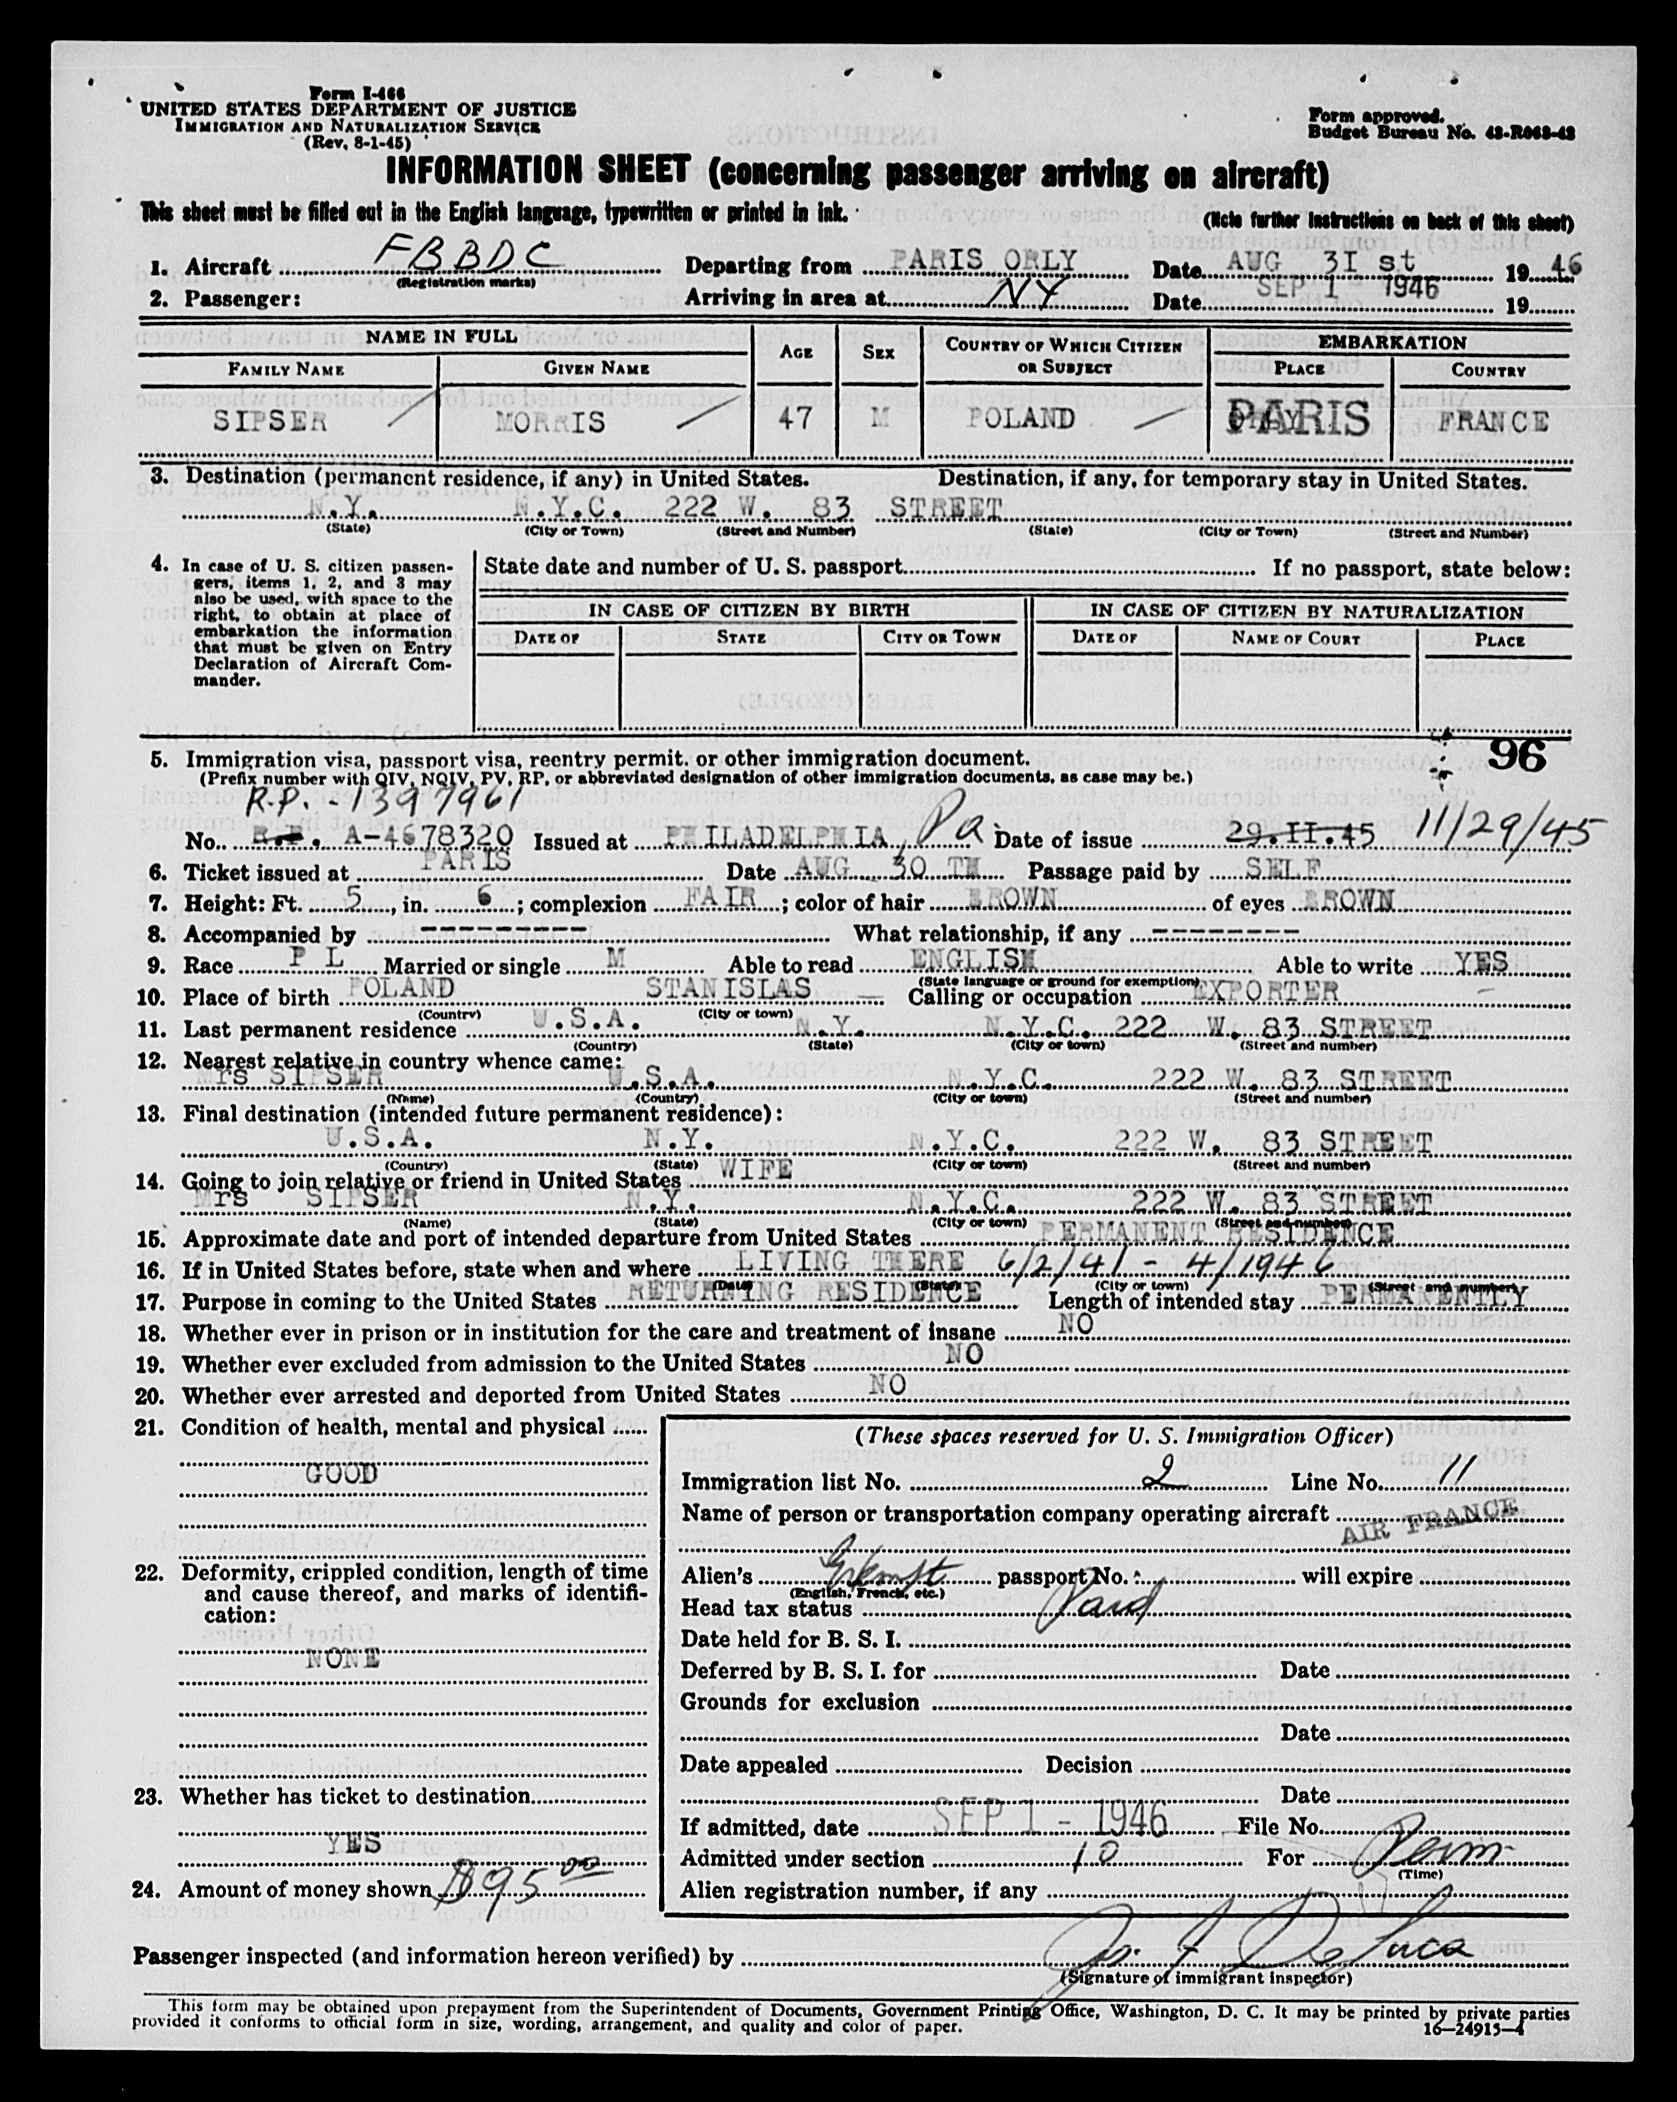 Form I-466
UNITED STATES DEPARTMENT OF JUSTICE
IMMIGRATION AND NATURALIZATION SERVICE
(Rev. 8-1-45)
Form approved.
Budget Bureau No. 43-R063-43
INFORMATION SHEET (concerning passenger arriving on aircraft)
This sheet must be filled out in the English language, typewritten or printed in ink.
(Note further instructions on back of this sheet)
1. Aircraft FBBDC Departing from PARIS ORLY Date AUG 3I st 19 46
(Registration marks)
2. Passenger: Arriving in area at NY Date SEP 1 1946 19
NAME IN FULL AGE SEX COUNTRY OF WHICH CITIZEN OR SUBJECT EMBARKATION
FAMILY NAME GIVEN NAME PLACE COUNTRY
SIPSER MORRIS 47 M POLAND PARIS FRANCE
3. Destination (permanent residence, if any) in United States. Destination, if any, for temporary stay in United States.
N.Y. N.Y.C. 222 W. 83 STREET
(State) (City or Town) (Street and Number) (State) (City or Town) (Street and Number)
4. In case of U. S. citizen passen-
gers, items 1, 2, and 3 may
also be used, with space to the
right, to obtain at place of
embarkation the information
that must be given on Entry
Declaration of Aircraft Com-
mander.
State date and number of U. S. passport If no passport, state below:
IN CASE OF CITIZEN BY BIRTH IN CASE OF CITIZEN BY NATURALIZATION
DATE OF STATE CITY OR TOWN DATE OF NAME OF COURT PLACE
96
5. Immigration visa, passport visa, reentry permit, or other immigration document.
(Prefix number with QIV, NQIV, PV, RP, or abbreviated designation of other immigration documents, as case may be.)
R.P. - 1397961
No. R.P. A-4678320 Issued at PHILADELPHIA, Pa Date of issue 29.II.45 11/29/45
6. Ticket issued at PARIS Date AUG 30 TH Passage paid by SELF
7. Height: Ft. 5, in. 6; complexion FAIR; color of hair BROWN of eyes BROWN
8. Accompanied by ---------- What relationship, if any ---------
9. Race P L Married or single M Able to read ENGLISH Able to write YES
(State language or ground for exemption)
10. Place of birth POLAND STANISLAS Calling or occupation EXPORTER
(Country) (City or town)
11. Last permanent residence U.S.A. N.Y. N.Y.C. 222 W. 83 STREET
(Country) (State) (City or town) (Street and number)
12. Nearest relative in country whence came:
Mrs SIPSER U.S.A. N.Y.C. 222 W. 83 STREET
(Name) (Country) (City or town) (Street and number)
13. Final destination (intended future permanent residence):
U.S.A. N.Y. N.Y.C. 222 W. 83 STREET
(Country) (State) (City or town) (Street and number)
14. Going to join relative or friend in United States WIFE
Mrs SIPSER N.Y. N.Y.C. 222 W. 83 STREET
(Name) (State) (City or town) (Street and number)
15. Approximate date and port of intended departure from United States PERMANENT RESIDENCE
16. If in United States before, state when and where LIVING THERE 6/2/41 - 4/1946
(Date) (State) (City or town) (Street and number)
17. Purpose in coming to the United States RETURNING RESIDENCE Length of intended stay PERMANENTLY
18. Whether ever in prison or in institution for the care and treatment of insane NO
19. Whether ever excluded from admission to the United States NO
20. Whether ever arrested and deported from United States NO
21. Condition of health, mental and physical
GOOD
22. Deformity, crippled condition, length of time
and cause thereof, and marks of identifi-
cation:
NONE
23. Whether has ticket to destination
YES
24. Amount of money shown $95.00
(These spaces reserved for U. S. Immigration Officer)
Immigration list No. 2 Line No. 11
Name of person or transportation company operating aircraft AIR FRANCE
Alien's passport No. will expire
(English, French, etc.)
Head tax status Paid
Date held for B. S. I.
Deferred by B. S. I. for Date
Grounds for exclusion
Date
Date appealed Decision
Date
If admitted, date SEP 1 - 1946 File No.
Admitted under section 10 For Perm
(Time)
Alien registration number, if any
Passenger inspected (and information hereon verified) by Jos. F DeLuca
(Signature of immigrant inspector)
This form may be obtained upon prepayment from the Superintendent of Documents, Government Printing Office, Washington, D. C. It may be printed by private parties
provided it conforms to official form in size, wording, arrangement, and quality and color of paper.
16—24915-4